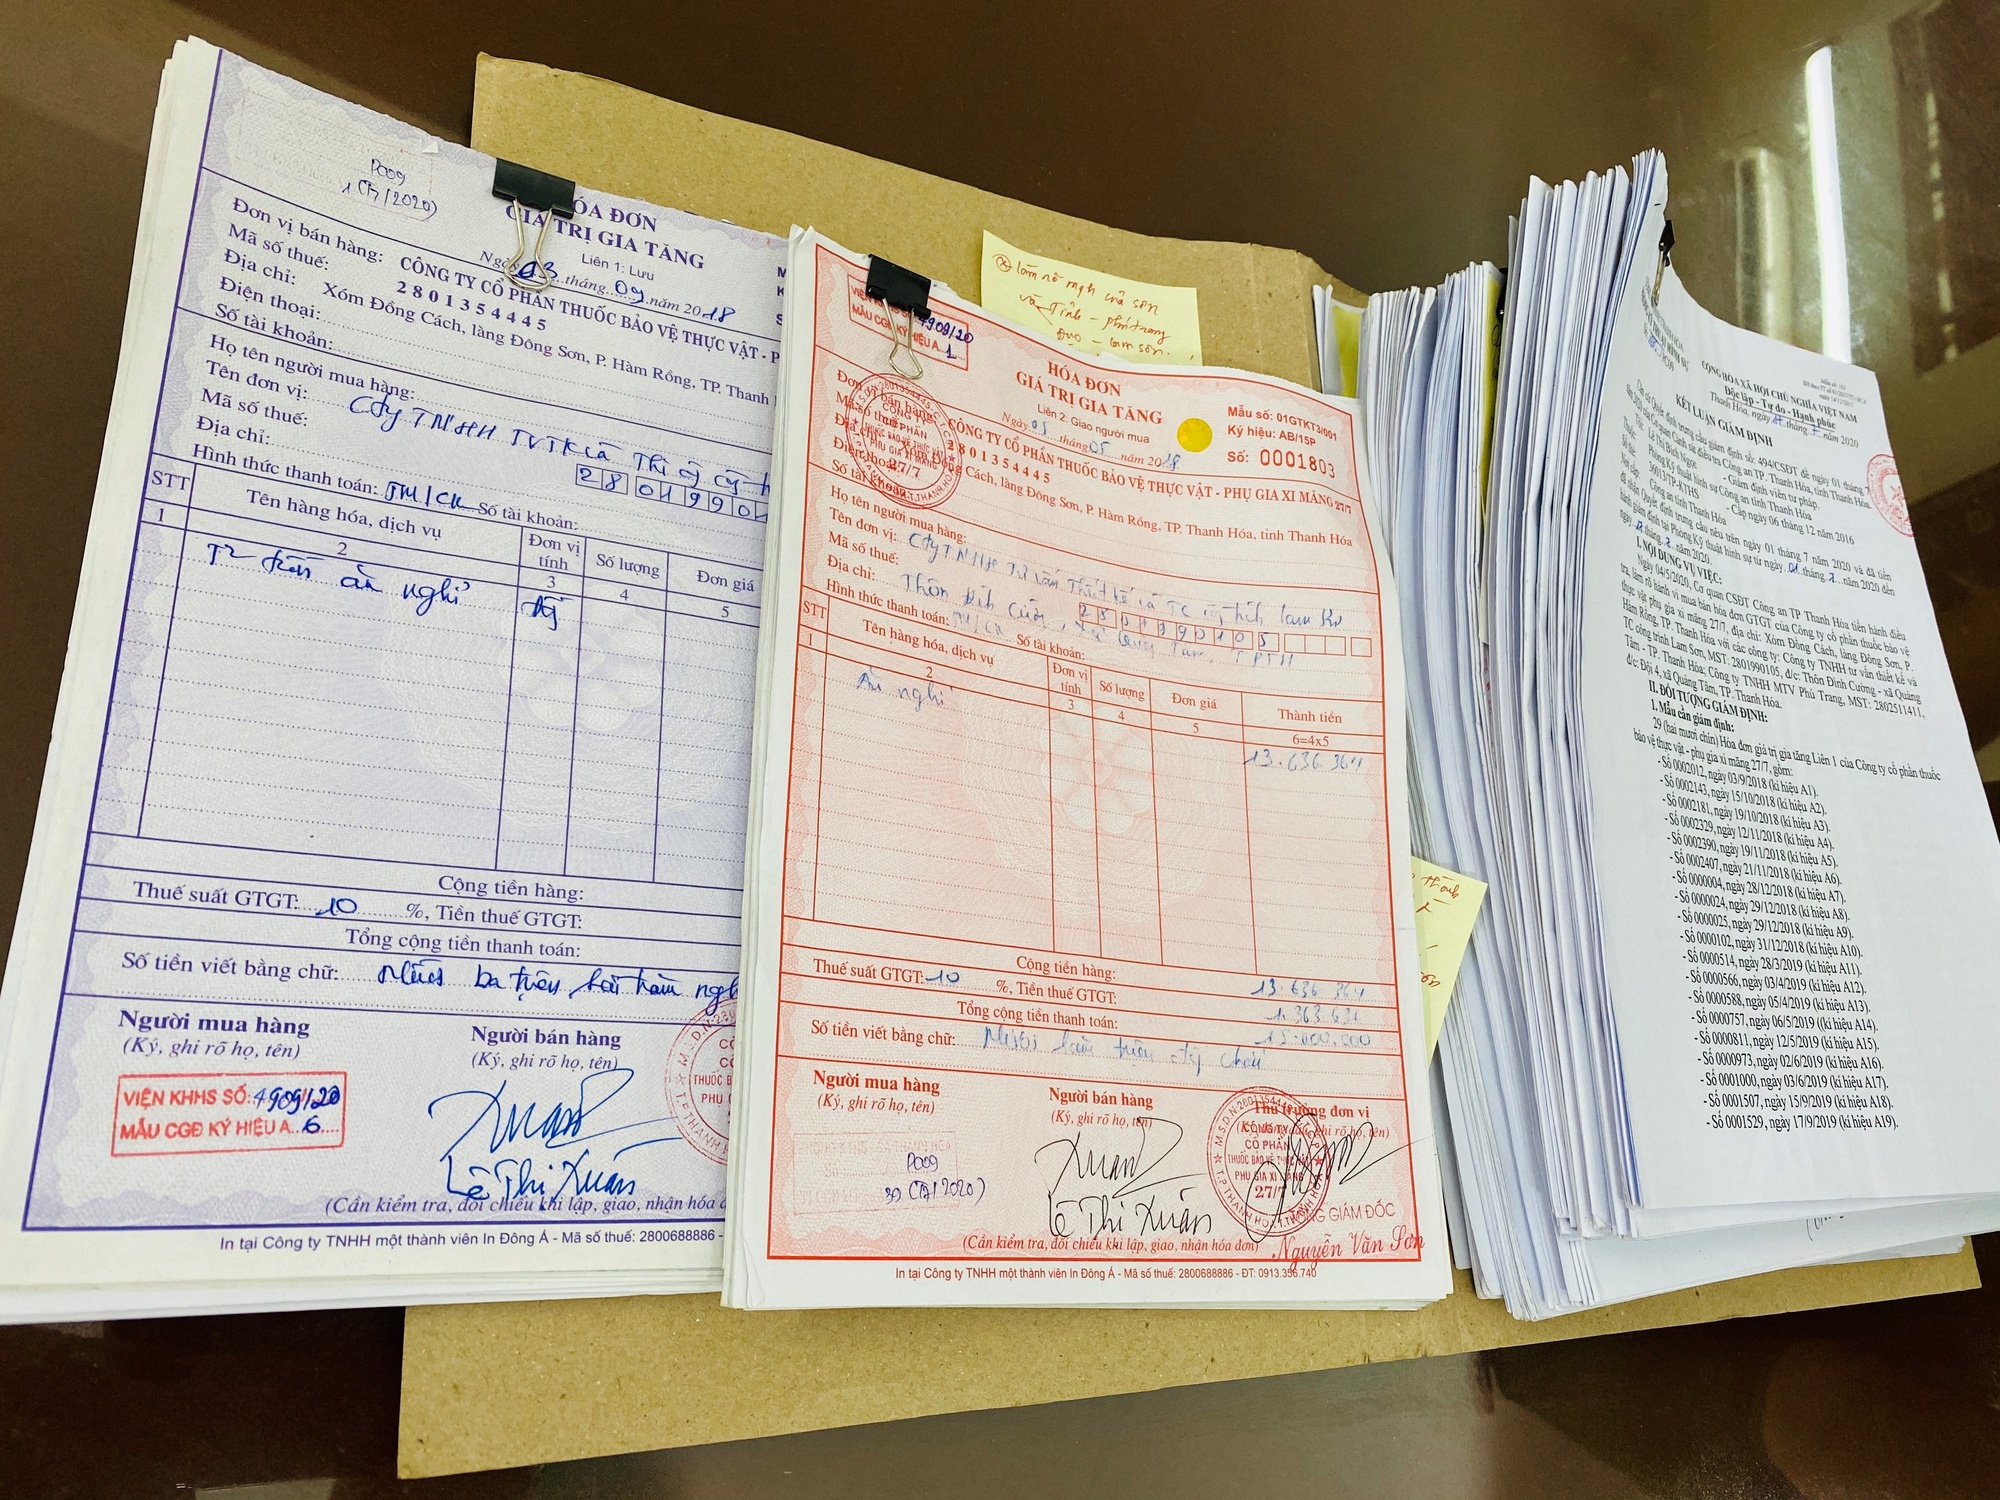 P009
1 (7/2020)
HÓA ĐƠN
GIÁ TRỊ GIA TĂNG
Liên 1: Lưu
Ngày 03 tháng 09 năm 2018
Đơn vị bán hàng: CÔNG TY CỔ PHẦN THUỐC BẢO VỆ THỰC VẬT - P
Mã số thuế: 2801354445
Địa chỉ: Xóm Đồng Cách, làng Đông Sơn, P. Hàm Rồng, TP. Thanh
Điện thoại:
Số tài khoản:
Họ tên người mua hàng:
Tên đơn vị: Cty TNHH TVTK và
Mã số thuế: 2801990
Địa chỉ:
Hình thức thanh toán: TM/CK Số tài khoản:
STT Tên hàng hóa, dịch vụ Đơn vị tính Số lượng Đơn giá
1 2 3 4 5
ăn nghỉ
Cộng tiền hàng:
Thuế suất GTGT: 10 %, Tiền thuế GTGT:
Tổng cộng tiền thanh toán:
Số tiền viết bằng chữ: Mười ba triệu hai trăm
Người mua hàng Người bán hàng
(Ký, ghi rõ họ, tên) (Ký, ghi rõ họ, tên)
VIỆN KHHS SỐ: 4909/20
MẪU CGĐ KÝ HIỆU A 6
Lê Thị Xuân
(Cần kiểm tra, đối chiếu khi lập, giao, nhận hóa
In tại Công ty TNHH một thành viên In Đông Á - Mã số thuế: 2800688886 -
làm rõ
của sơn
và Tỉnh - phú trang
lam sơn
4909/20
MẪU CGĐ KÝ HIỆU A 1
HÓA ĐƠN
GIÁ TRỊ GIA TĂNG
Liên 2: Giao người mua
Ngày 05 tháng 05 năm 2018
Mẫu số: 01GTKT3/001
Ký hiệu: AB/15P
Số: 0001803
Đơn vị bán hàng: CÔNG TY CỔ PHẦN THUỐC BẢO VỆ THỰC VẬT - PHỤ GIA XI MĂNG 27/7
Mã số thuế: 2801354445
Địa chỉ: Xóm Đồng Cách, làng Đông Sơn, P. Hàm Rồng, TP. Thanh Hóa, tỉnh Thanh Hóa
Điện thoại:
Số tài khoản:
Họ tên người mua hàng:
Tên đơn vị: Cty TNHH Tư vấn Thiết kế và TC công trình Lam Sơn
Mã số thuế: 2801990105
Địa chỉ: Thôn Đình Cường, xã Quảng Tâm, TPTH
Hình thức thanh toán: TM/CK Số tài khoản:
STT Tên hàng hóa, dịch vụ Đơn vị tính Số lượng Đơn giá Thành tiền
1 2 3 4 5 6=4x5
Ăn nghỉ 13.636.364
Cộng tiền hàng: 13.636.364
Thuế suất GTGT: 10 %, Tiền thuế GTGT: 1.363.636
Tổng cộng tiền thanh toán: 15.000.000
Số tiền viết bằng chữ: Mười lăm triệu đồng chẵn
Người mua hàng Người bán hàng Thủ trưởng đơn vị
(Ký, ghi rõ họ, tên) (Ký, ghi rõ họ, tên) (Ký, đóng dấu, ghi rõ họ, tên)
P009
30 (7/2020)
Lê Thị Xuân
CÔNG TY
CỔ PHẦN
THUỐC BẢO VỆ THỰC VẬT
PHỤ GIA XI MĂNG
27/7
TỔNG GIÁM ĐỐC
Nguyễn Văn Sơn
(Cần kiểm tra, đối chiếu khi lập, giao, nhận hóa đơn)
In tại Công ty TNHH một thành viên In Đông Á - Mã số thuế: 2800688886 - ĐT: 0913.356.740
CỘNG HÒA XÃ HỘI CHỦ NGHĨA VIỆT NAM
Độc lập - Tự do - Hạnh phúc
Thanh Hóa, ngày tháng 7 năm 2020
KẾT LUẬN GIÁM ĐỊNH
Căn cứ Quyết định trưng cầu giám định số: 494/CSĐT đề ngày 01 tháng 7
năm 2020 của Cơ quan Cảnh sát điều tra Công an TP. Thanh Hóa, tỉnh Thanh Hóa.
Tôi: Lê Thị Bích Ngọc - Giám định viên tư pháp.
Phòng Kỹ thuật hình sự Công an tỉnh Thanh Hóa
36013/TP-KTHS - Cấp ngày 06 tháng 12 năm 2016
Công an tỉnh Thanh Hóa
đã nhận Quyết định trưng cầu nêu trên ngày 01 tháng 7 năm 2020 và đã tiến
hành giám định tại Phòng Kỹ thuật hình sự từ ngày 01 tháng 7 năm 2020 đến
ngày tháng 7 năm 2020.
I. NỘI DUNG VỤ VIỆC:
Ngày 04/5/2020, Cơ quan CSĐT Công an TP Thanh Hóa tiến hành điều
tra, làm rõ hành vi mua bán hóa đơn GTGT của Công ty cổ phần thuốc bảo vệ
thực vật phụ gia xi măng 27/7, địa chỉ: Xóm Đồng Cách, làng Đông Sơn, P.
Hàm Rồng, TP. Thanh Hóa với các công ty: Công ty TNHH tư vấn thiết kế và
TC công trình Lam Sơn, MST: 2801990105, đ/c: Thôn Đình Cường - xã Quảng
Tâm - TP. Thanh Hóa; Công ty TNHH MTV Phú Trang, MST: 2802511411,
đ/c: Đội 4, xã Quảng Tâm, TP. Thanh Hóa.
II. ĐỐI TƯỢNG GIÁM ĐỊNH:
1. Mẫu cần giám định:
29 (hai mươi chín) Hóa đơn giá trị gia tăng Liên 1 của Công ty cổ phần thuốc
bảo vệ thực vật - phụ gia xi măng 27/7, gồm:
- Số 0002012, ngày 03/9/2018 (kí hiệu A1).
- Số 0002143, ngày 15/10/2018 (kí hiệu A2).
- Số 0002181, ngày 19/10/2018 (kí hiệu A3).
- Số 0002329, ngày 12/11/2018 (kí hiệu A4).
- Số 0002390, ngày 19/11/2018 (kí hiệu A5).
- Số 0002407, ngày 21/11/2018 (kí hiệu A6).
- Số 0000004, ngày 28/12/2018 (kí hiệu A7).
- Số 0000024, ngày 29/12/2018 (kí hiệu A8).
- Số 0000025, ngày 29/12/2018 (kí hiệu A9).
- Số 0000102, ngày 31/12/2018 (kí hiệu A10).
- Số 0000514, ngày 28/3/2019 (kí hiệu A11).
- Số 0000566, ngày 03/4/2019 (kí hiệu A12).
- Số 0000588, ngày 05/4/2019 (kí hiệu A13).
- Số 0000757, ngày 06/5/2019 (kí hiệu A14).
- Số 0000811, ngày 12/5/2019 (kí hiệu A15).
- Số 0000973, ngày 02/6/2019 (kí hiệu A16).
- Số 0001000, ngày 03/6/2019 (kí hiệu A17).
- Số 0001507, ngày 15/9/2019 (kí hiệu A18).
- Số 0001529, ngày 17/9/2019 (kí hiệu A19).